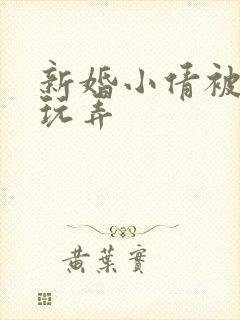 新婚小倩被
玩弄
黄葉實